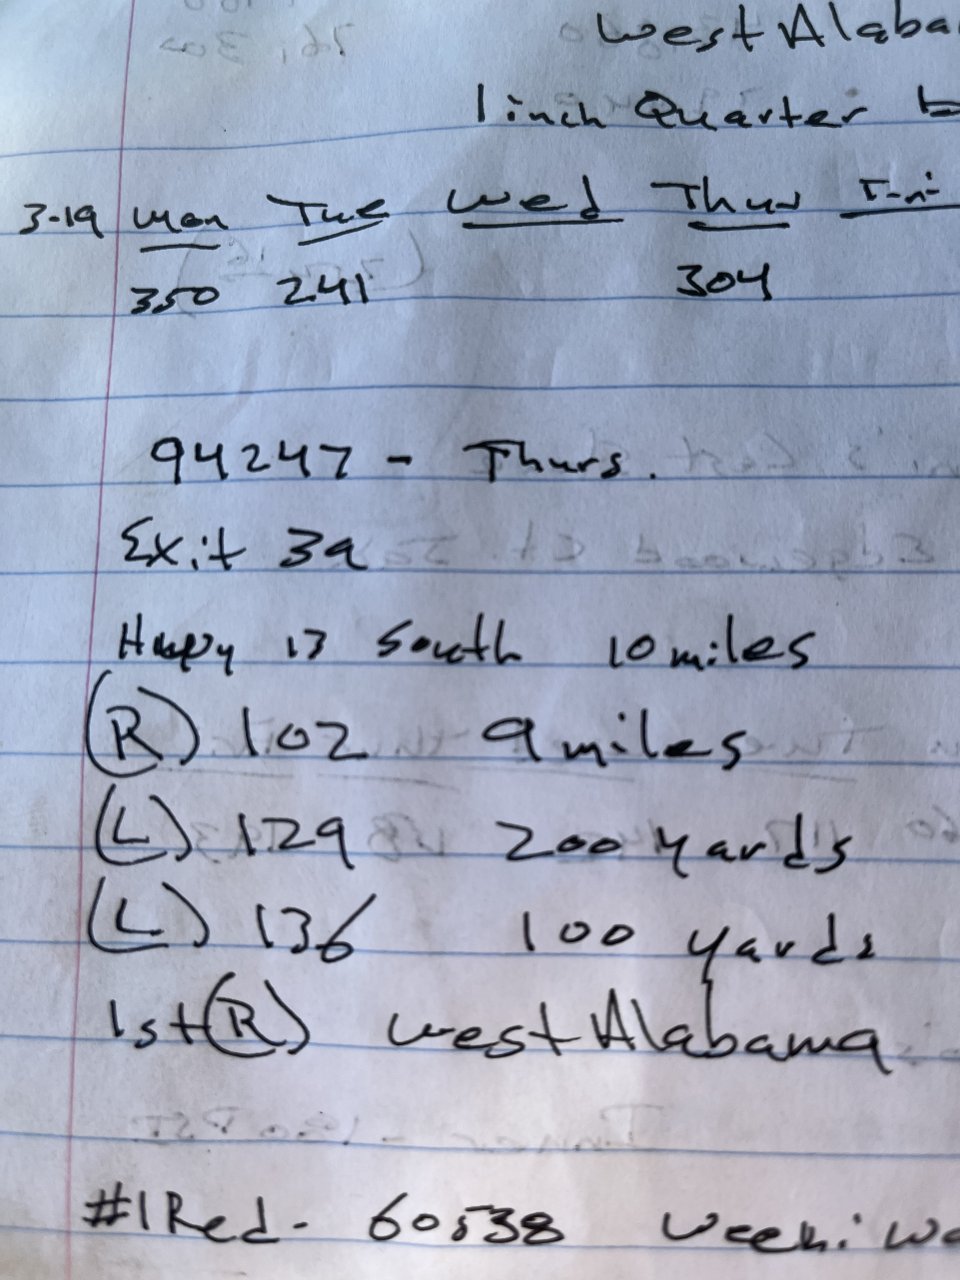 West Alaba
1 inch Quarter
3-19 Mon Tue Wed Thur
350 241 304
94247 - Thurs.
Exit 3a
13 South 10 miles
(R) 102 9 miles
(L) 129 200 yards
(L) 136 100 yards
1st (R) West Alabama
#1 Red - 60538